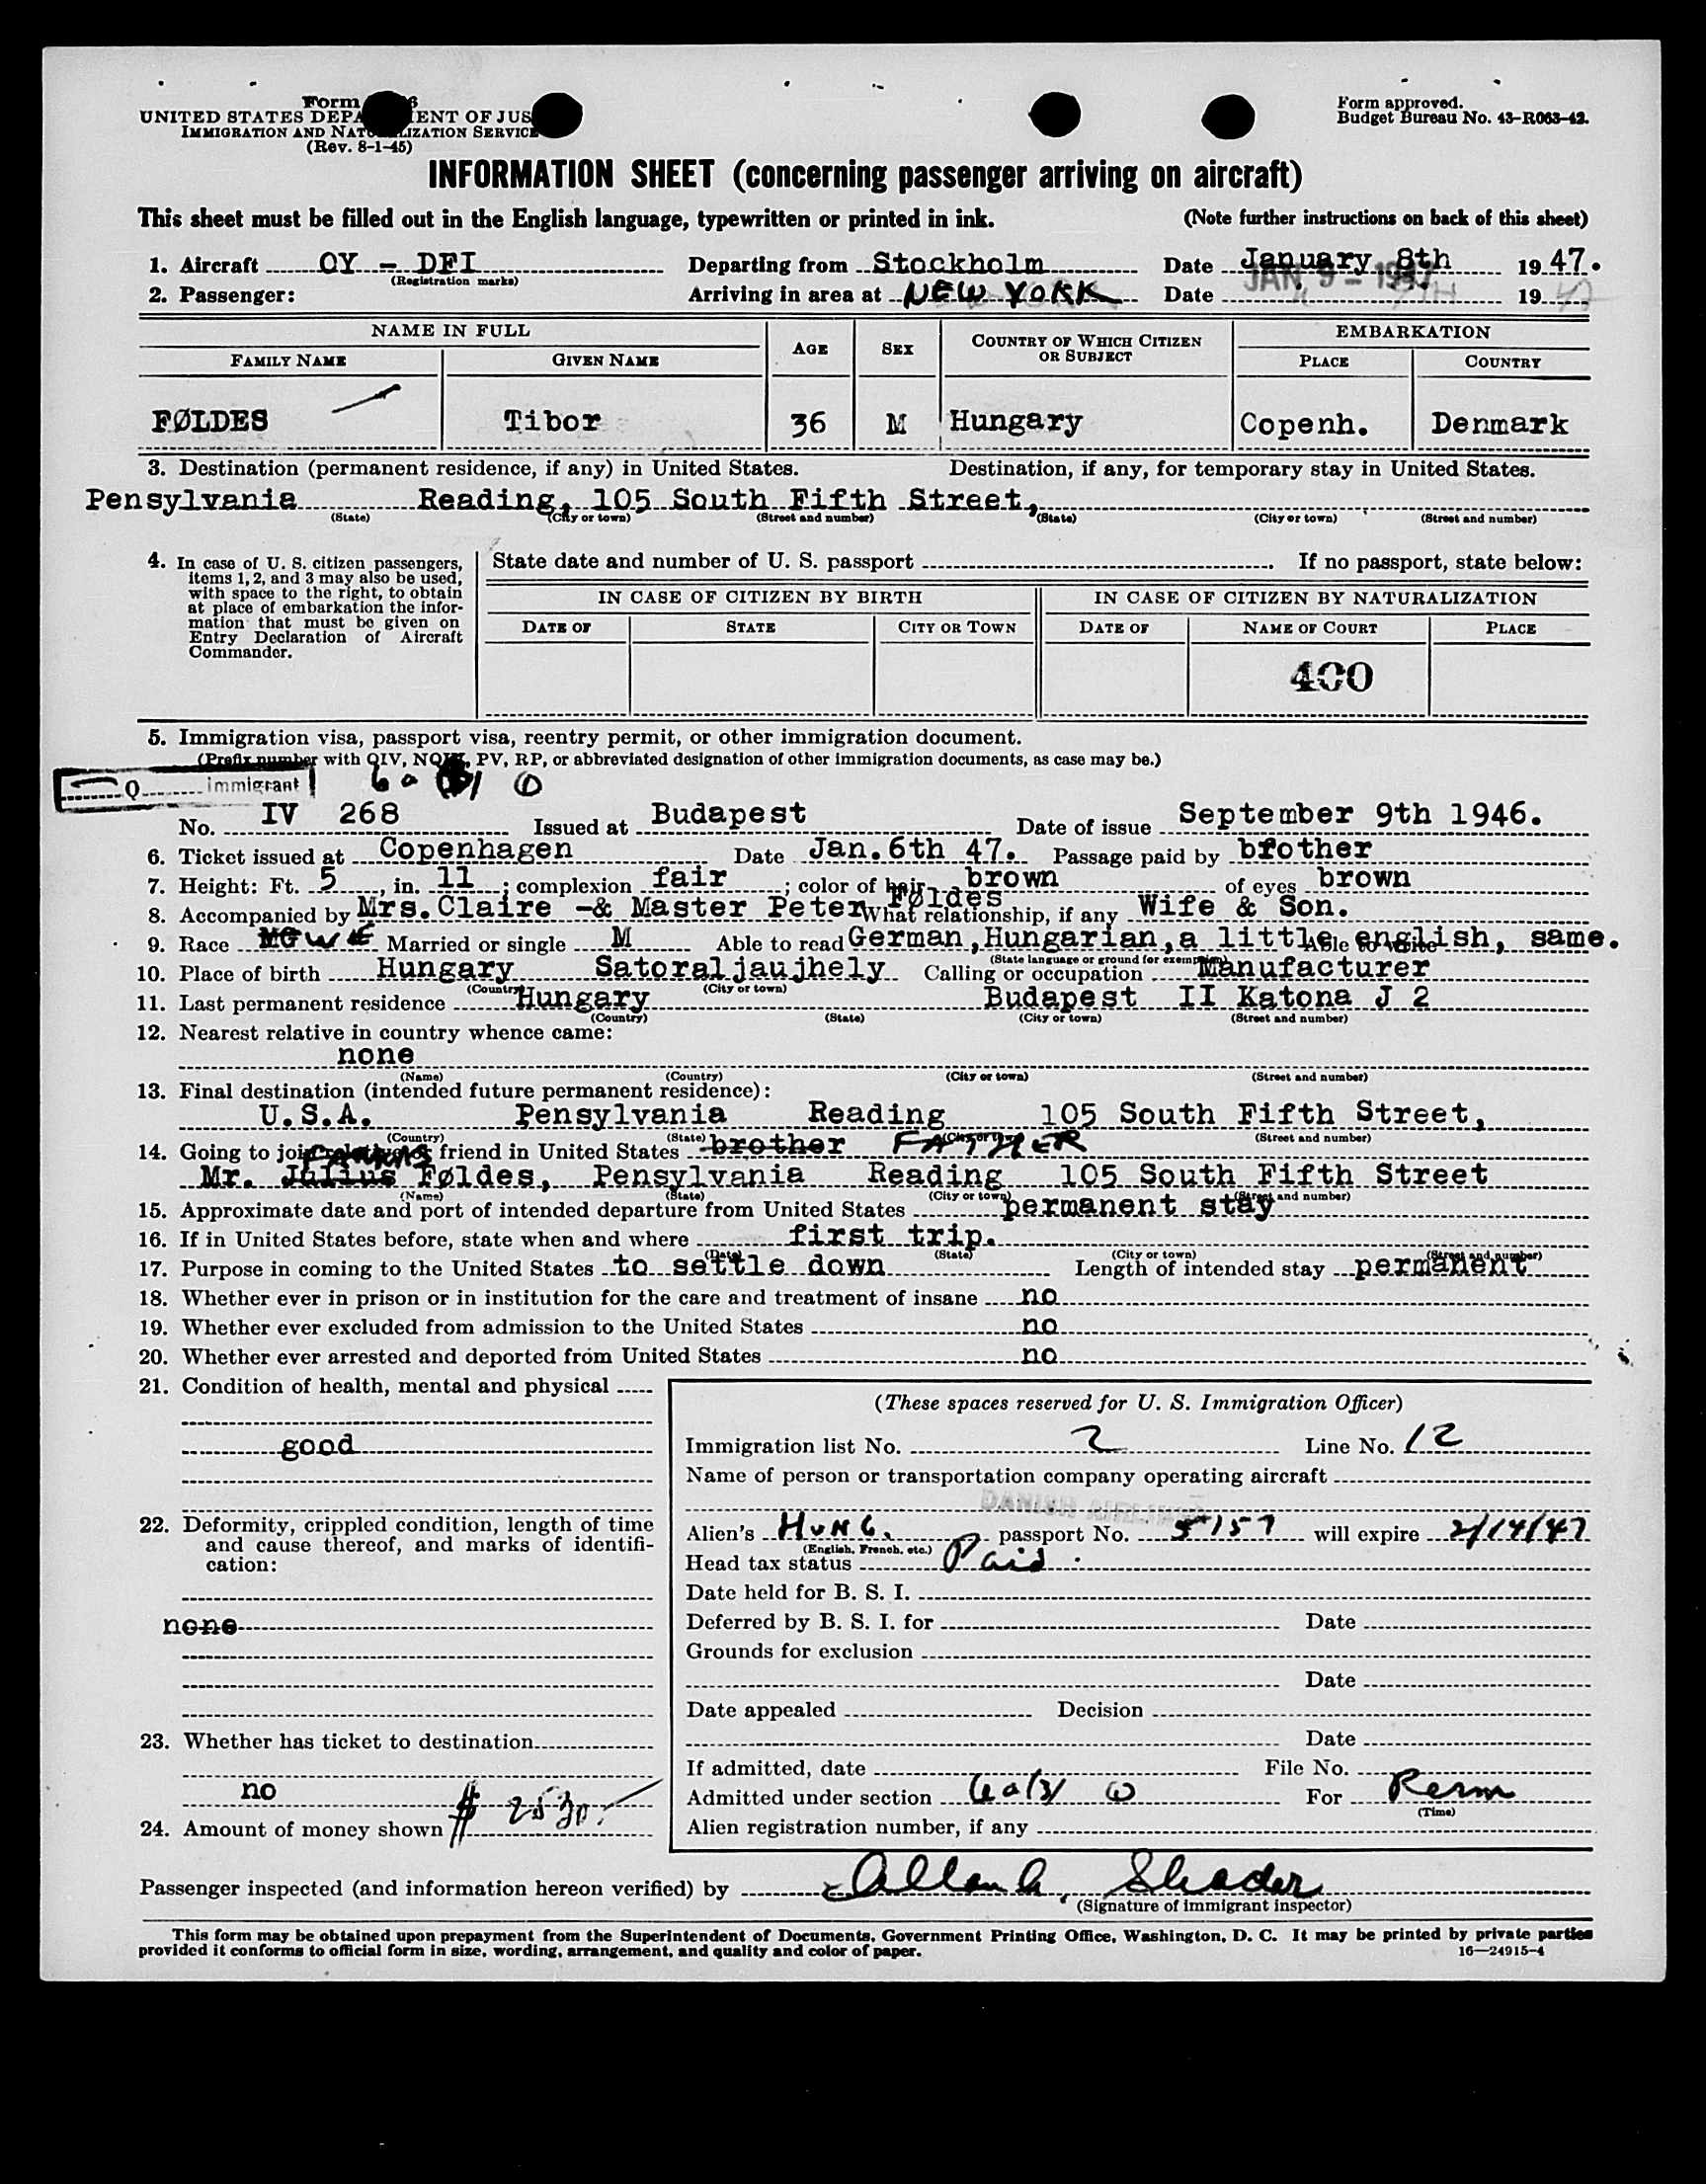 Form
UNITED STATES DEPARTMENT OF JUS
IMMIGRATION AND NATURALIZATION SERVICE
(Rev. 8-1-45)
Form approved.
Budget Bureau No. 43-R063-42.
INFORMATION SHEET (concerning passenger arriving on aircraft)
This sheet must be filled out in the English language, typewritten or printed in ink. (Note further instructions on back of this sheet)
1. Aircraft OY - DFI Departing from Stockholm Date January 8th 19 47.
(Registration marks)
2. Passenger: Arriving in area at NEW YORK Date JAN 9 - 1947 19 47
NAME IN FULL AGE SEX COUNTRY OF WHICH CITIZEN OR SUBJECT EMBARKATION
FAMILY NAME GIVEN NAME PLACE COUNTRY
FØLDES Tibor 36 M Hungary Copenh. Denmark
3. Destination (permanent residence, if any) in United States. Destination, if any, for temporary stay in United States.
Pensylvania Reading, 105 South Fifth Street,
(State) (City or town) (Street and number) (State) (City or town) (Street and number)
4. In case of U. S. citizen passengers, items 1, 2, and 3 may also be used, with space to the right, to obtain at place of embarkation the information that must be given on Entry Declaration of Aircraft Commander.
State date and number of U. S. passport . If no passport, state below:
IN CASE OF CITIZEN BY BIRTH IN CASE OF CITIZEN BY NATURALIZATION
DATE OF STATE CITY OR TOWN DATE OF NAME OF COURT PLACE
400
5. Immigration visa, passport visa, reentry permit, or other immigration document.
(Prefix number with QIV, NQIV, PV, RP, or abbreviated designation of other immigration documents, as case may be.)
Q immigrant
No. IV 268 Issued at Budapest Date of issue September 9th 1946.
6. Ticket issued at Copenhagen Date Jan. 6th 47. Passage paid by brother
7. Height: Ft. 5, in. 11; complexion fair; color of hair brown of eyes brown
8. Accompanied by Mrs. Claire -& Master Peter Føldes What relationship, if any Wife & Son.
9. Race Married or single M Able to read German, Hungarian, a little english, same. Able to write
(State language or ground for exemption)
10. Place of birth Hungary Satoraljaujhely Calling or occupation Manufacturer
(Country) (City or town)
11. Last permanent residence Hungary Budapest II Katona J 2
(Country) (State) (City or town) (Street and number)
12. Nearest relative in country whence came:
none
(Name) (Country) (City or town) (Street and number)
13. Final destination (intended future permanent residence):
U.S.A. Pensylvania Reading 105 South Fifth Street,
(Country) (State) (City or town) (Street and number)
14. Going to join relative or friend in United States brother FATHER
Mr. Julius Føldes, Pensylvania Reading 105 South Fifth Street
(Name) (State) (City or town) (Street and number)
15. Approximate date and port of intended departure from United States permanent stay
16. If in United States before, state when and where first trip.
(Date) (State) (City or town) (Street and number)
17. Purpose in coming to the United States to settle down Length of intended stay permanent
18. Whether ever in prison or in institution for the care and treatment of insane no
19. Whether ever excluded from admission to the United States no
20. Whether ever arrested and deported from United States no
21. Condition of health, mental and physical
good
22. Deformity, crippled condition, length of time and cause thereof, and marks of identification:
none
23. Whether has ticket to destination
no
24. Amount of money shown $ 2530.
(These spaces reserved for U. S. Immigration Officer)
Immigration list No. 2 Line No. 12
Name of person or transportation company operating aircraft
Alien's HUNG. passport No. 5157 will expire 2/14/47
(English, French, etc.)
Head tax status Paid
Date held for B. S. I.
Deferred by B. S. I. for Date
Grounds for exclusion
Date
Date appealed Decision
Date
If admitted, date File No.
Admitted under section 6a(3) For Perm
(Time)
Alien registration number, if any
Passenger inspected (and information hereon verified) by Allan Shader
(Signature of immigrant inspector)
This form may be obtained upon prepayment from the Superintendent of Documents, Government Printing Office, Washington, D. C. It may be printed by private parties
provided it conforms to official form in size, wording, arrangement, and quality and color of paper. 16—24915-4